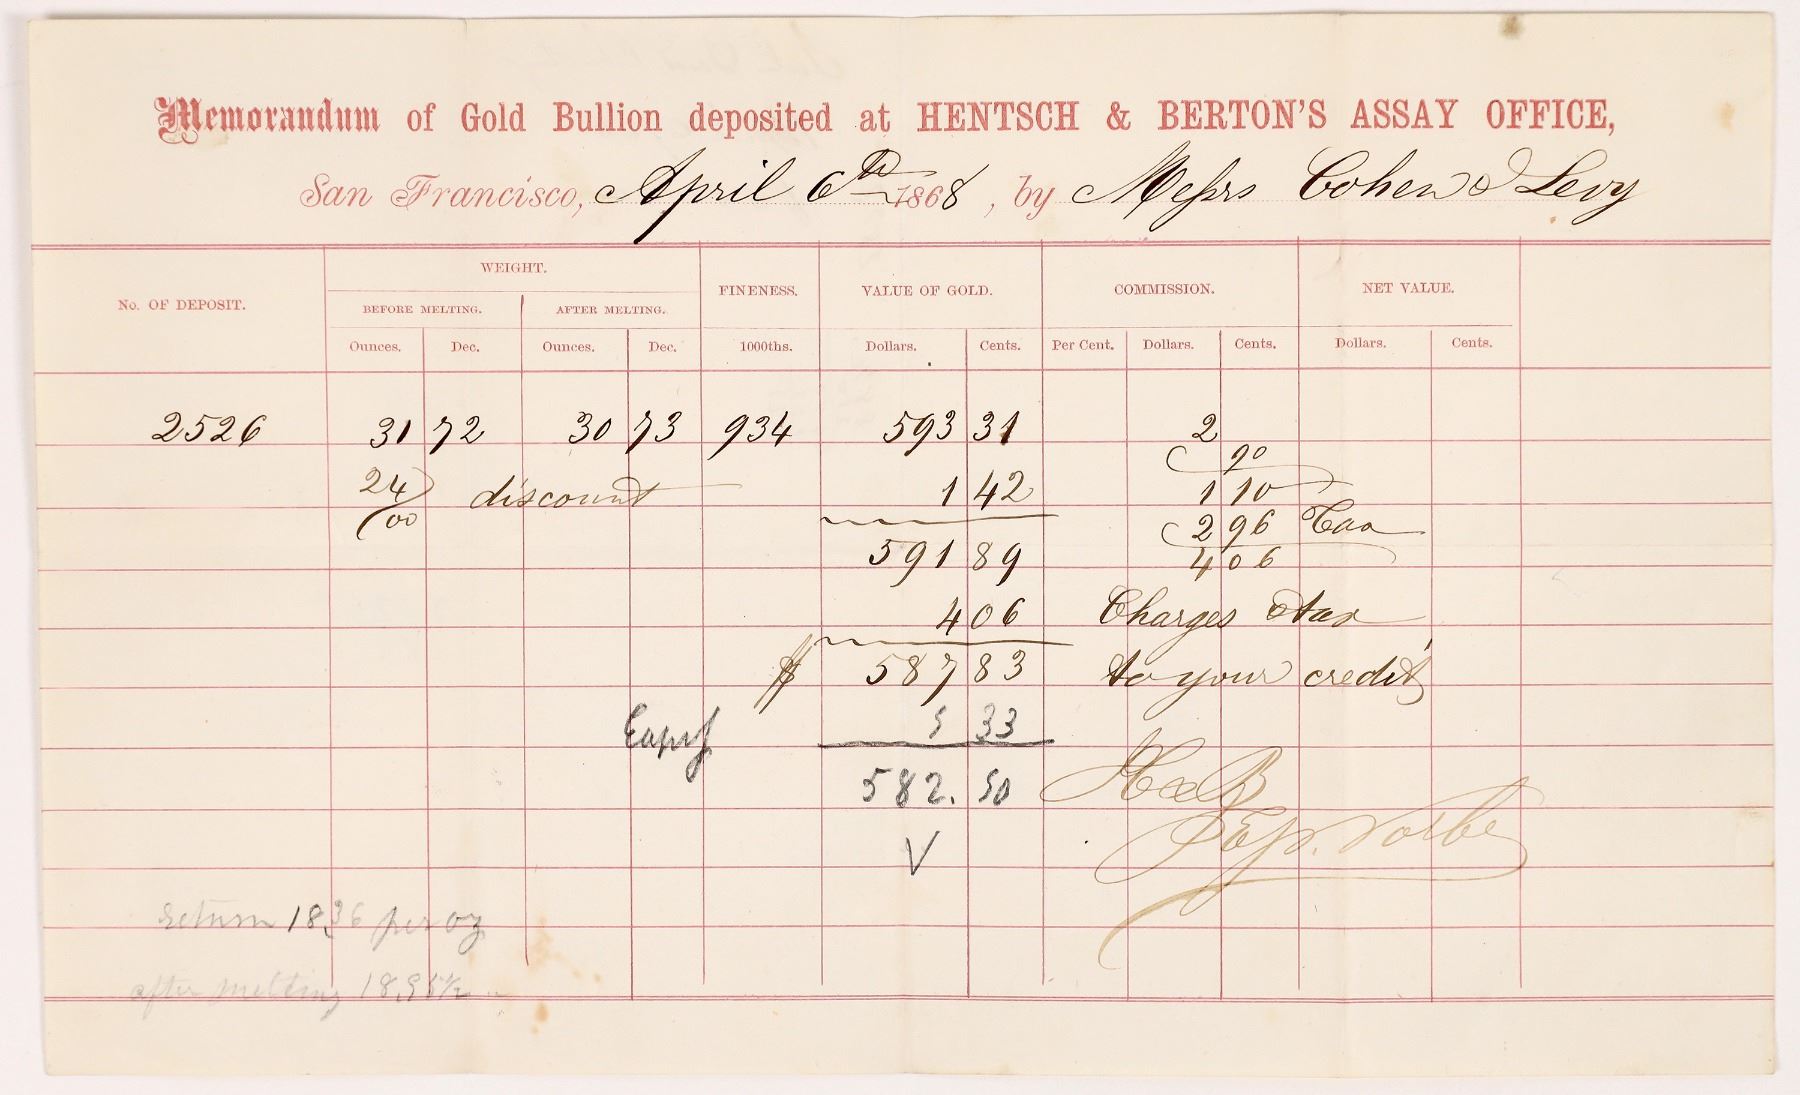 Memorandum of Gold Bullion deposited at HENTSCH & BERTON'S ASSAY OFFICE,
San Francisco, April 6th 1868, by Messrs Cohen & Levy
No. OF DEPOSIT. WEIGHT. FINENESS. VALUE OF GOLD. COMMISSION. NET VALUE.
BEFORE MELTING. AFTER MELTING.
Ounces. Dec. Ounces. Dec. 1000ths. Dollars. Cents. Per Cent. Dollars. Cents. Dollars. Cents.
2526 31 72 30 73 934 593 31 2
90
24/00 discount 1 42 1 10
2 96 Tax
591 89 4 06
4 06 Charges & tax
$ 587 83 to your credit
5 33
582. 50 H & B
V
return 18.36 per oz
after melting